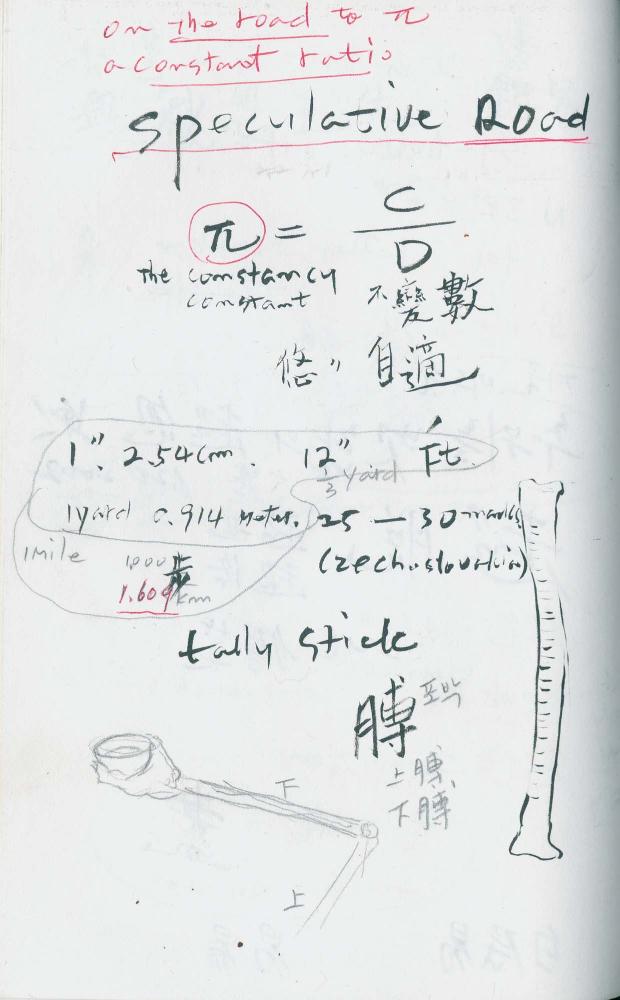 on the road to π
a constant ratio
speculative Road
π = C
D
the constancy
constant
不變數
悠〃 自適
1" 2.54cm. 12" Ft.
1/3 yard
1yard 0.914 meter. 25 — 30 marks
1mile 1000步 (zechoslovakia)
1.609km
tally stick
膊 포박
上膊
下膊
下
上